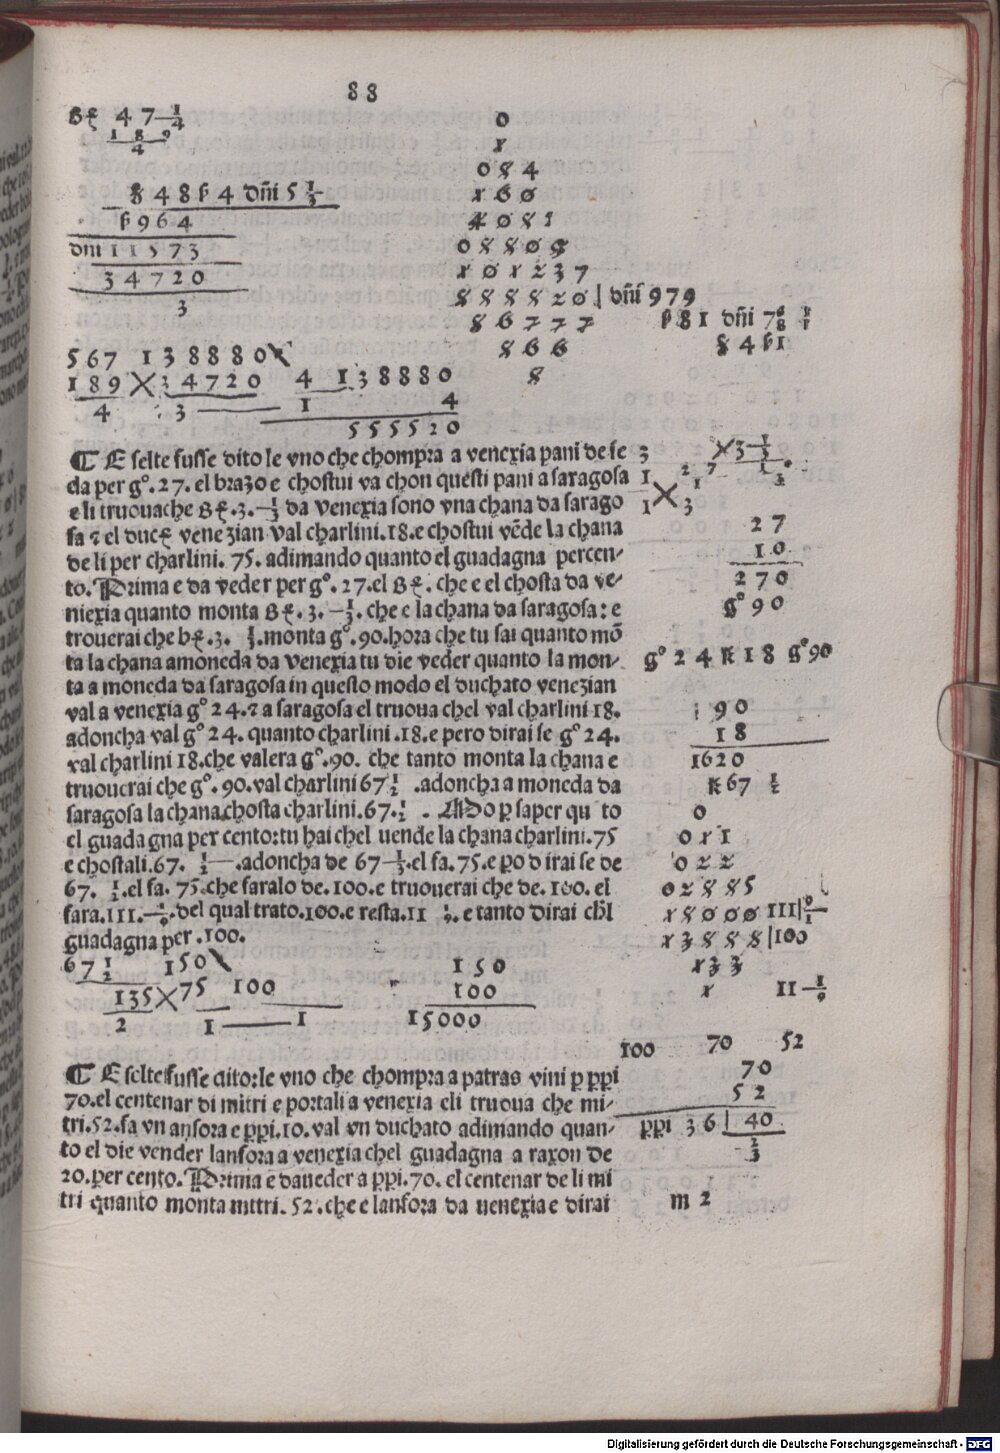 88
47 1/4
1 8 9
4
8 4 8 4 5 1/3
9 6 4
1 1 5 7 3
3 4 7 2 0
3
5 6 7 1 3 8 8 8 0
1 8 9 3 4 7 2 0 4 1 3 8 8 8 0
4 3 1 4
5 5 5 5 2 0
0
x
0 8 4
x 6 0
4 0 8 1
0 8 8 0 9
x 0 x 2 3 7
8 8 8 8 2 0 | 979
8 6 7 7 7 81 7
8 6 6 8 4 1
8
E selte fusse dito le vno che chompra a venexia pani de se
da per g°. 27. el brazo e chostui va chon questi pani a saragosa
e li truoua che .3. 1/3 da venexia sono vna chana da sarago
sa ⁊ el duc venezian val charlini.18.e chostui vēde la chana
de li per charlini. 75. adimando quanto el guadagna percen-
to. Prima e da veder per g°. 27.el . che e el chosta da ve-
niexia quanto monta . 3. 1/3. che e la chana da saragosa: e
trouerai che .3. 1/3.monta g°. 90.hora che tu sai quanto mō
ta la chana amoneda da venexia tu die veder quanto la mon-
ta a moneda da saragosa in questo modo el duchato venezian
val a venexia g° 24.⁊ a saragosa el truoua chel val charlini 18.
adoncha val g° 24. quanto charlini .18.e pero dirai se g° 24.
val charlini 18.che valera g°. 90. che tanto monta la chana e
truouerai che g°. 90.val charlini 67 1/2 .adoncha a moneda da
saragosa la chana chosta charlini.67. 1/2 . Mo ꝑ saper qu to
el guadagna per cento:tu hai chel uende la chana charlini.75
e chostali.67. 1/2 .adoncha de 67 1/2.el fa. 75.e ꝑo dirai se de
67. 1/2.el fa. 75.che faralo de.100.e truouerai che de.100. el
fara.111. 1/9.del qual trato.100.e resta.11 1/9.e tanto dirai
guadagna per .100.
3 3 1/3
1 2 7
1 3
2 7
1 0
2 7 0
g° 9 0
g° 2 4 18 g° 90
9 0
1 8
1620
67 1/2
0
0 x 1
0 2 2
0 2 8 8 5
x 8 0 0 0 111 |
x 3 8 8 8 |100
x 3 3
x 11
67 1/2 150 1 5 0
135 75 100 1 0 0
2 1 1 15000
E selte fusse dito:le vno che chompra a patras vini ꝑ ꝑꝑi
70.el centenar di mitri e portali a venexia eli truoua che mi-
tri.52.fa vn ansora e ꝑꝑi.10. val vn duchato adimando quan-
to el die vender lansora a venexia chel guadagna a raxon de
20.per cento. Prima e da ueder a ꝑꝑi.70. el centenar de li mi
tri quanto monta mitri. 52 .che e lansora da uenexia e dirai
100 70 52
7 0
5 2
ꝑꝑi 3 6 | 40
m 2
Digitalisierung gefördert durch die Deutsche Forschungsgemeinschaft - DFG